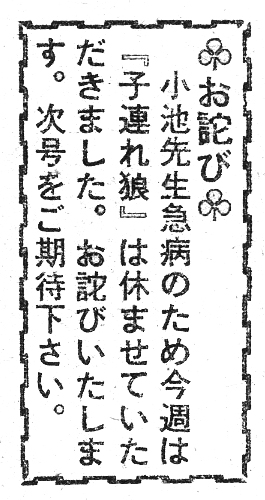 ♧お詫び♧
小池先生急病のため今週は
『子連れ狼』は休ませていた
だきました。お詫びいたしま
す。次号をご期待下さい。